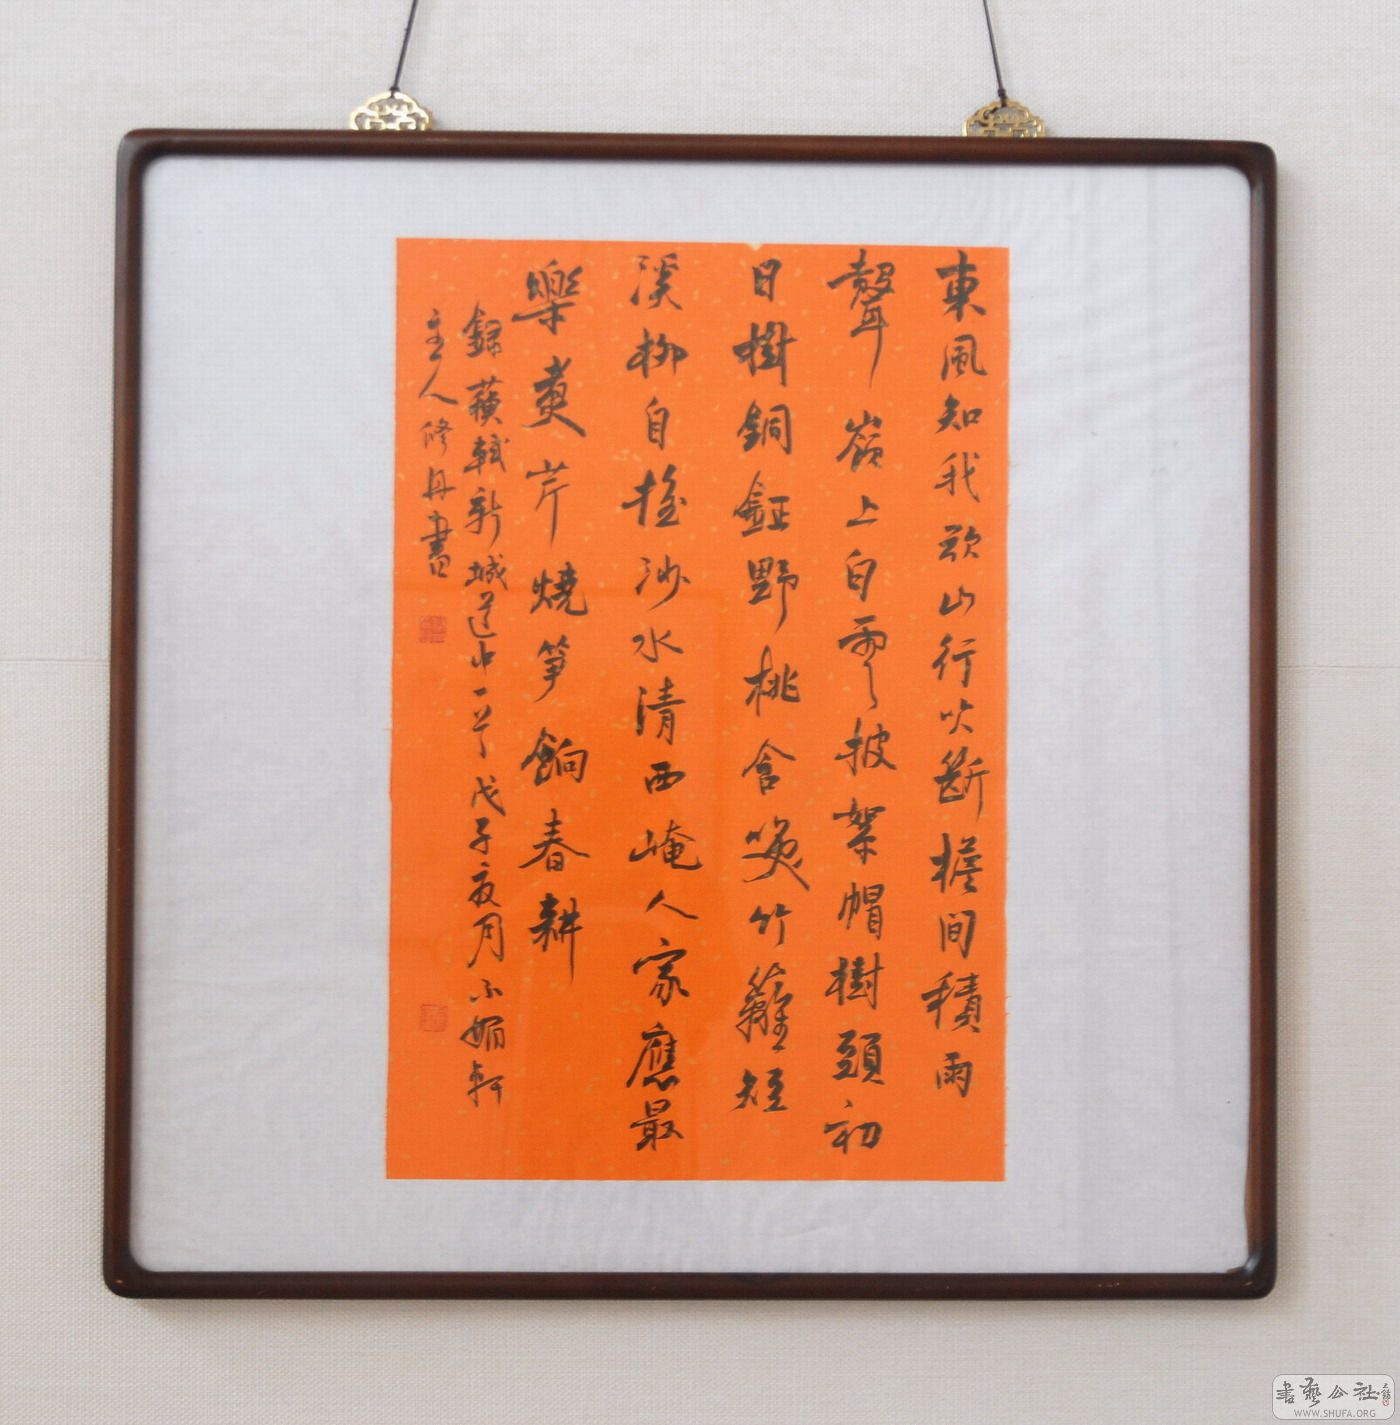 東風知我欲山行吹斷檐間積雨
聲嶺上白雲披絮帽樹頭初
日樹銅鉦野桃含笑竹籬短
溪柳自搖沙水清西崦人家應最
樂煑芹燒笋餉春耕
錄蘇軾新城道中一首戊子夜月小媚軒
主人修丹書
書藝公社
WWW.SHUFA.ORG